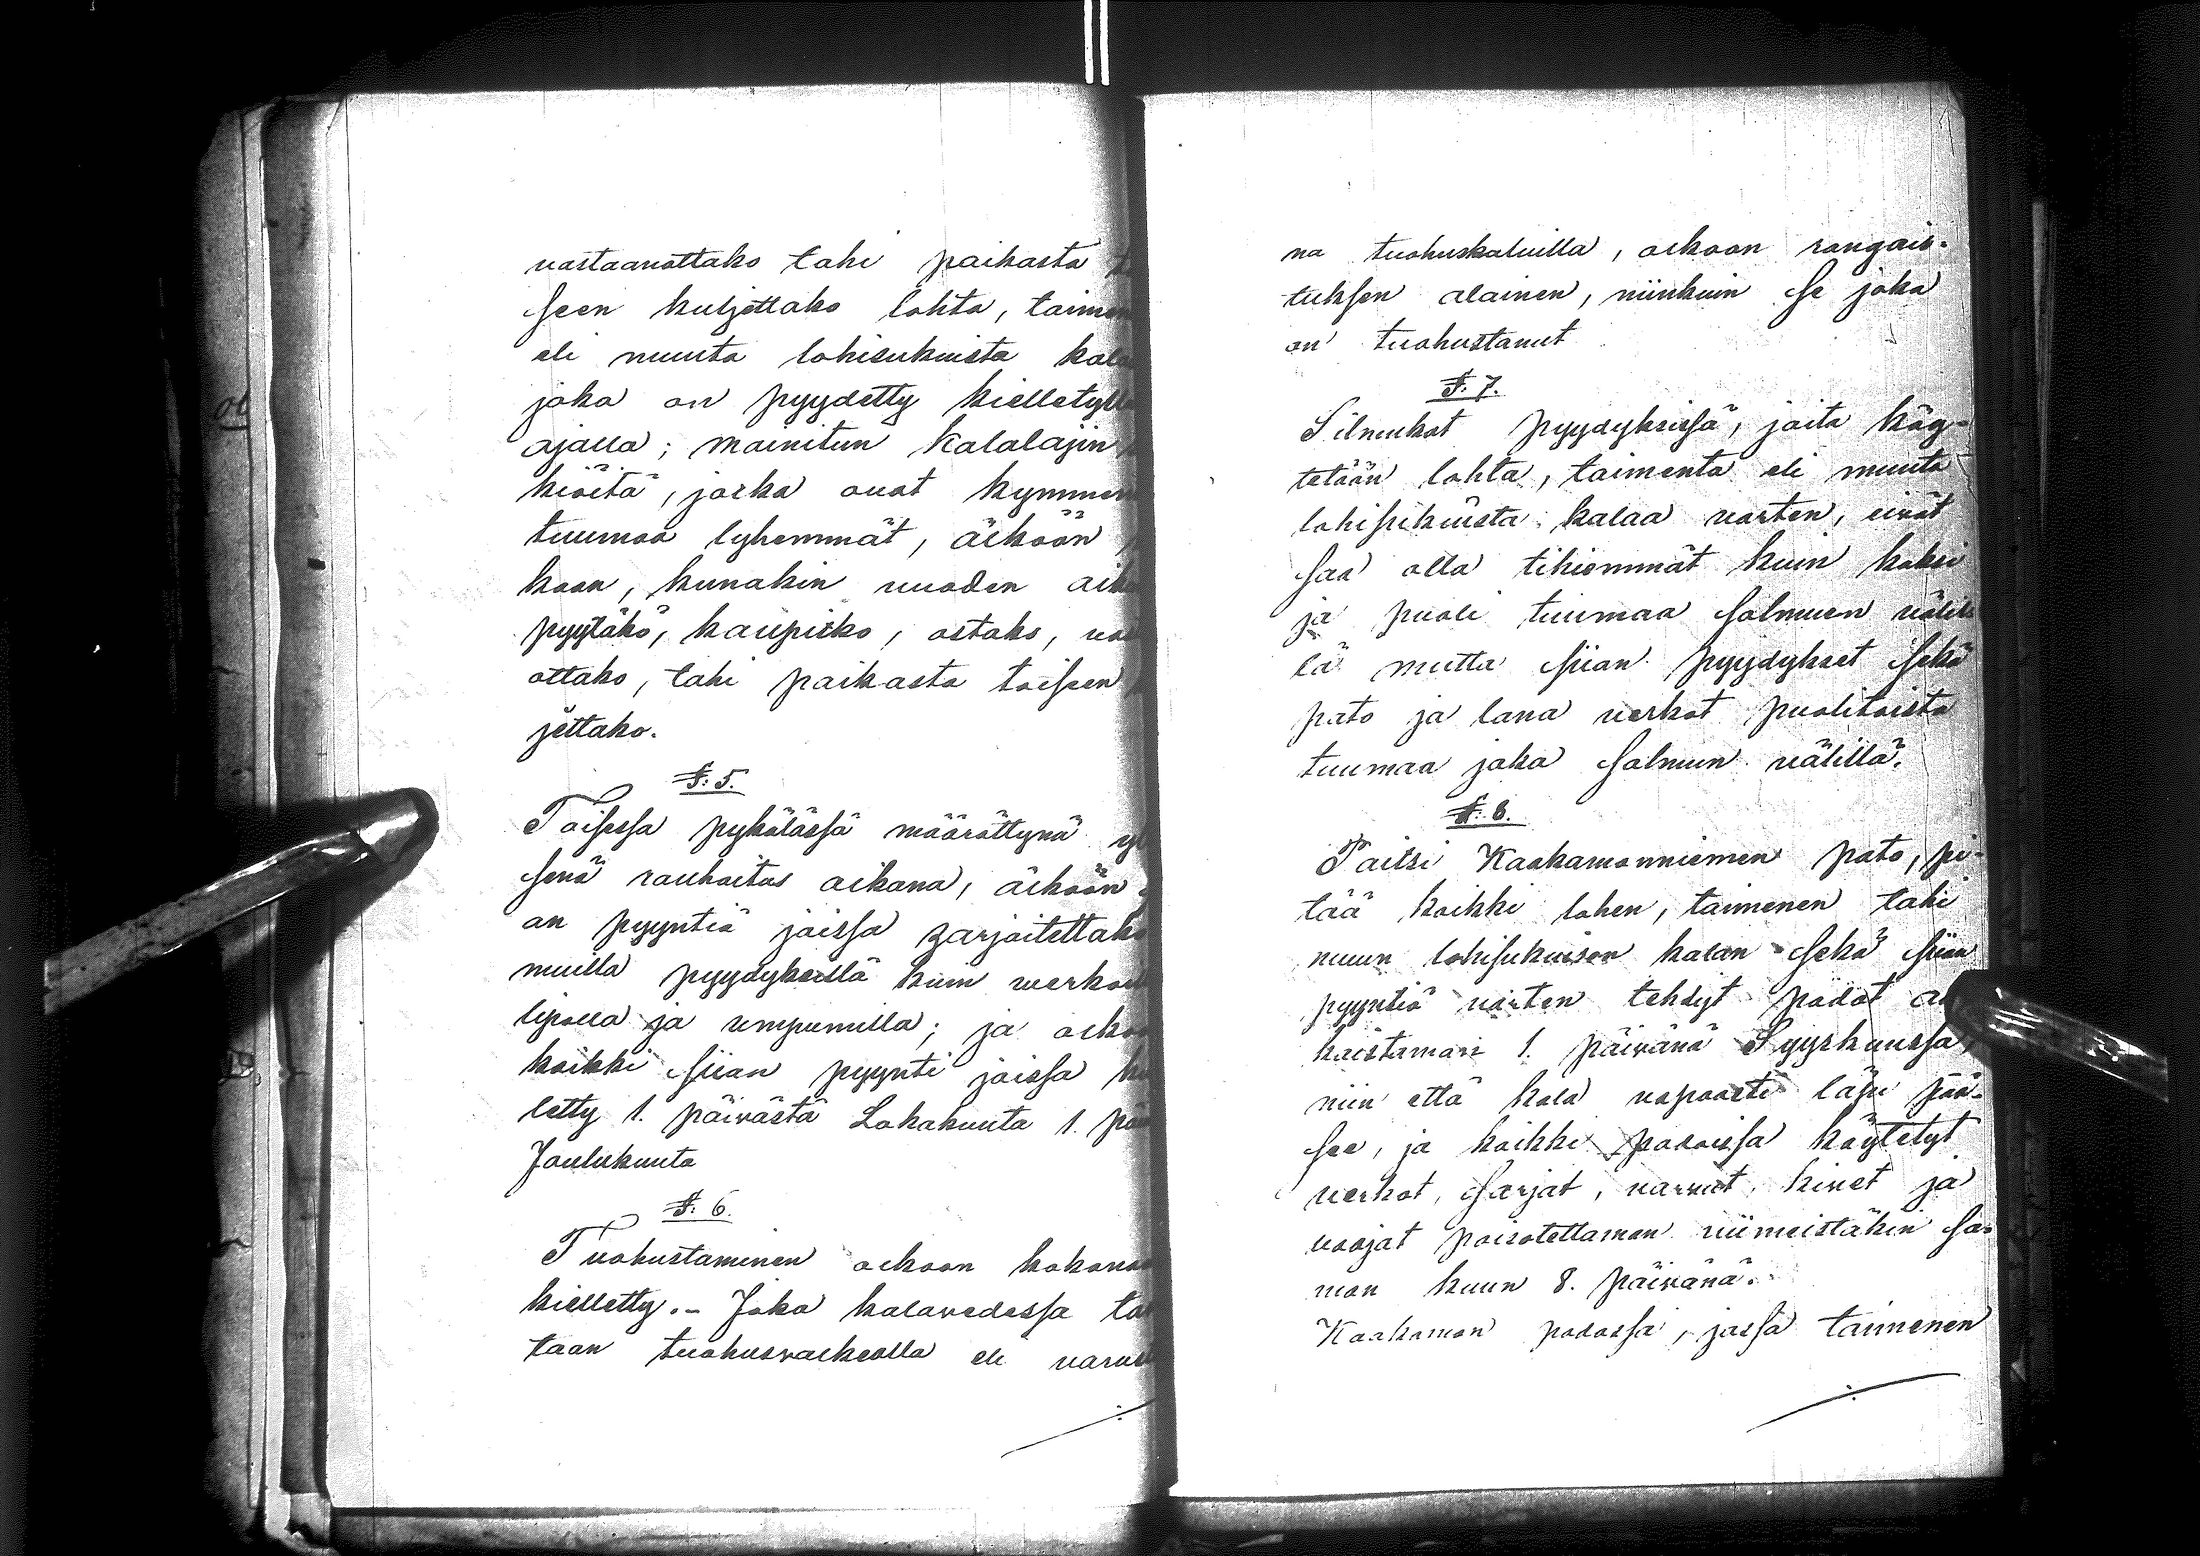 vastaanottako tahi paikasta
seen kuljettako lohta, taimen
eli muuta lohisukuista kala
joka on pyydetty kielletyllä
ajalla; mainitun kalalajin
kiöitä, jotka ovat kymmen
tuumaa lyhemmät, älköön
koon, kunakin vuoden aika
pyytäkö, kaupitko, ostako, vas
ottako, tahi paikasta toiseen
jettako.
§: 5.
Toisessa pykälässä määrättynä
senä rauhoitus aikana, älköön
on pyyntiä joissa harjoitettako
muilla pyydyksillä kuin verkoi
lipolla ja umpumilla; ja olko
kaikki siian pyynti joissa
letty 1. päivästä Lokakuuta 1. päi
Joulukuuta
§: 6.
Tuohustaminen olkoon kokona
kielletty.- Joka kalavedessa ta
taan tuohusvalkealla eli varus
na tuohuskaluilla, olkoon rangais-
tuksen alainen, niinkuin se joka
on tuohustanut
§: 7.
Silmukat pyydyksissä, joita käy-
tetään lohta, taimenta eli muuta
lohisukuista kalaa varten, eivät
saa olla tihiemmät kuin kaksi
ja puoli tuumaa solmuen välil
lä mutta siian pyydykset sekä
pato ja lana verkot puolitoista
tuumaa joka solmun välillä.
§: 8.
Paitsi Kaakamonniemen pato, pi-
tää kaikki lohen, taimenen tahi
muun lohisukuisen kalan sekä siian
pyyntiä varten tehdyt padot
kaistaman 1. päivänä Syyskuussa,
niin että kala vapaasti läpi pää-
see, ja kaikki padoissa käytetyt
verkot, sarjat, varvut, kivet ja
vaajat poisotettaman viimeistäkin sa-
man kuun 8. päivänä.
Kaakamon padossa, jossa taimenen